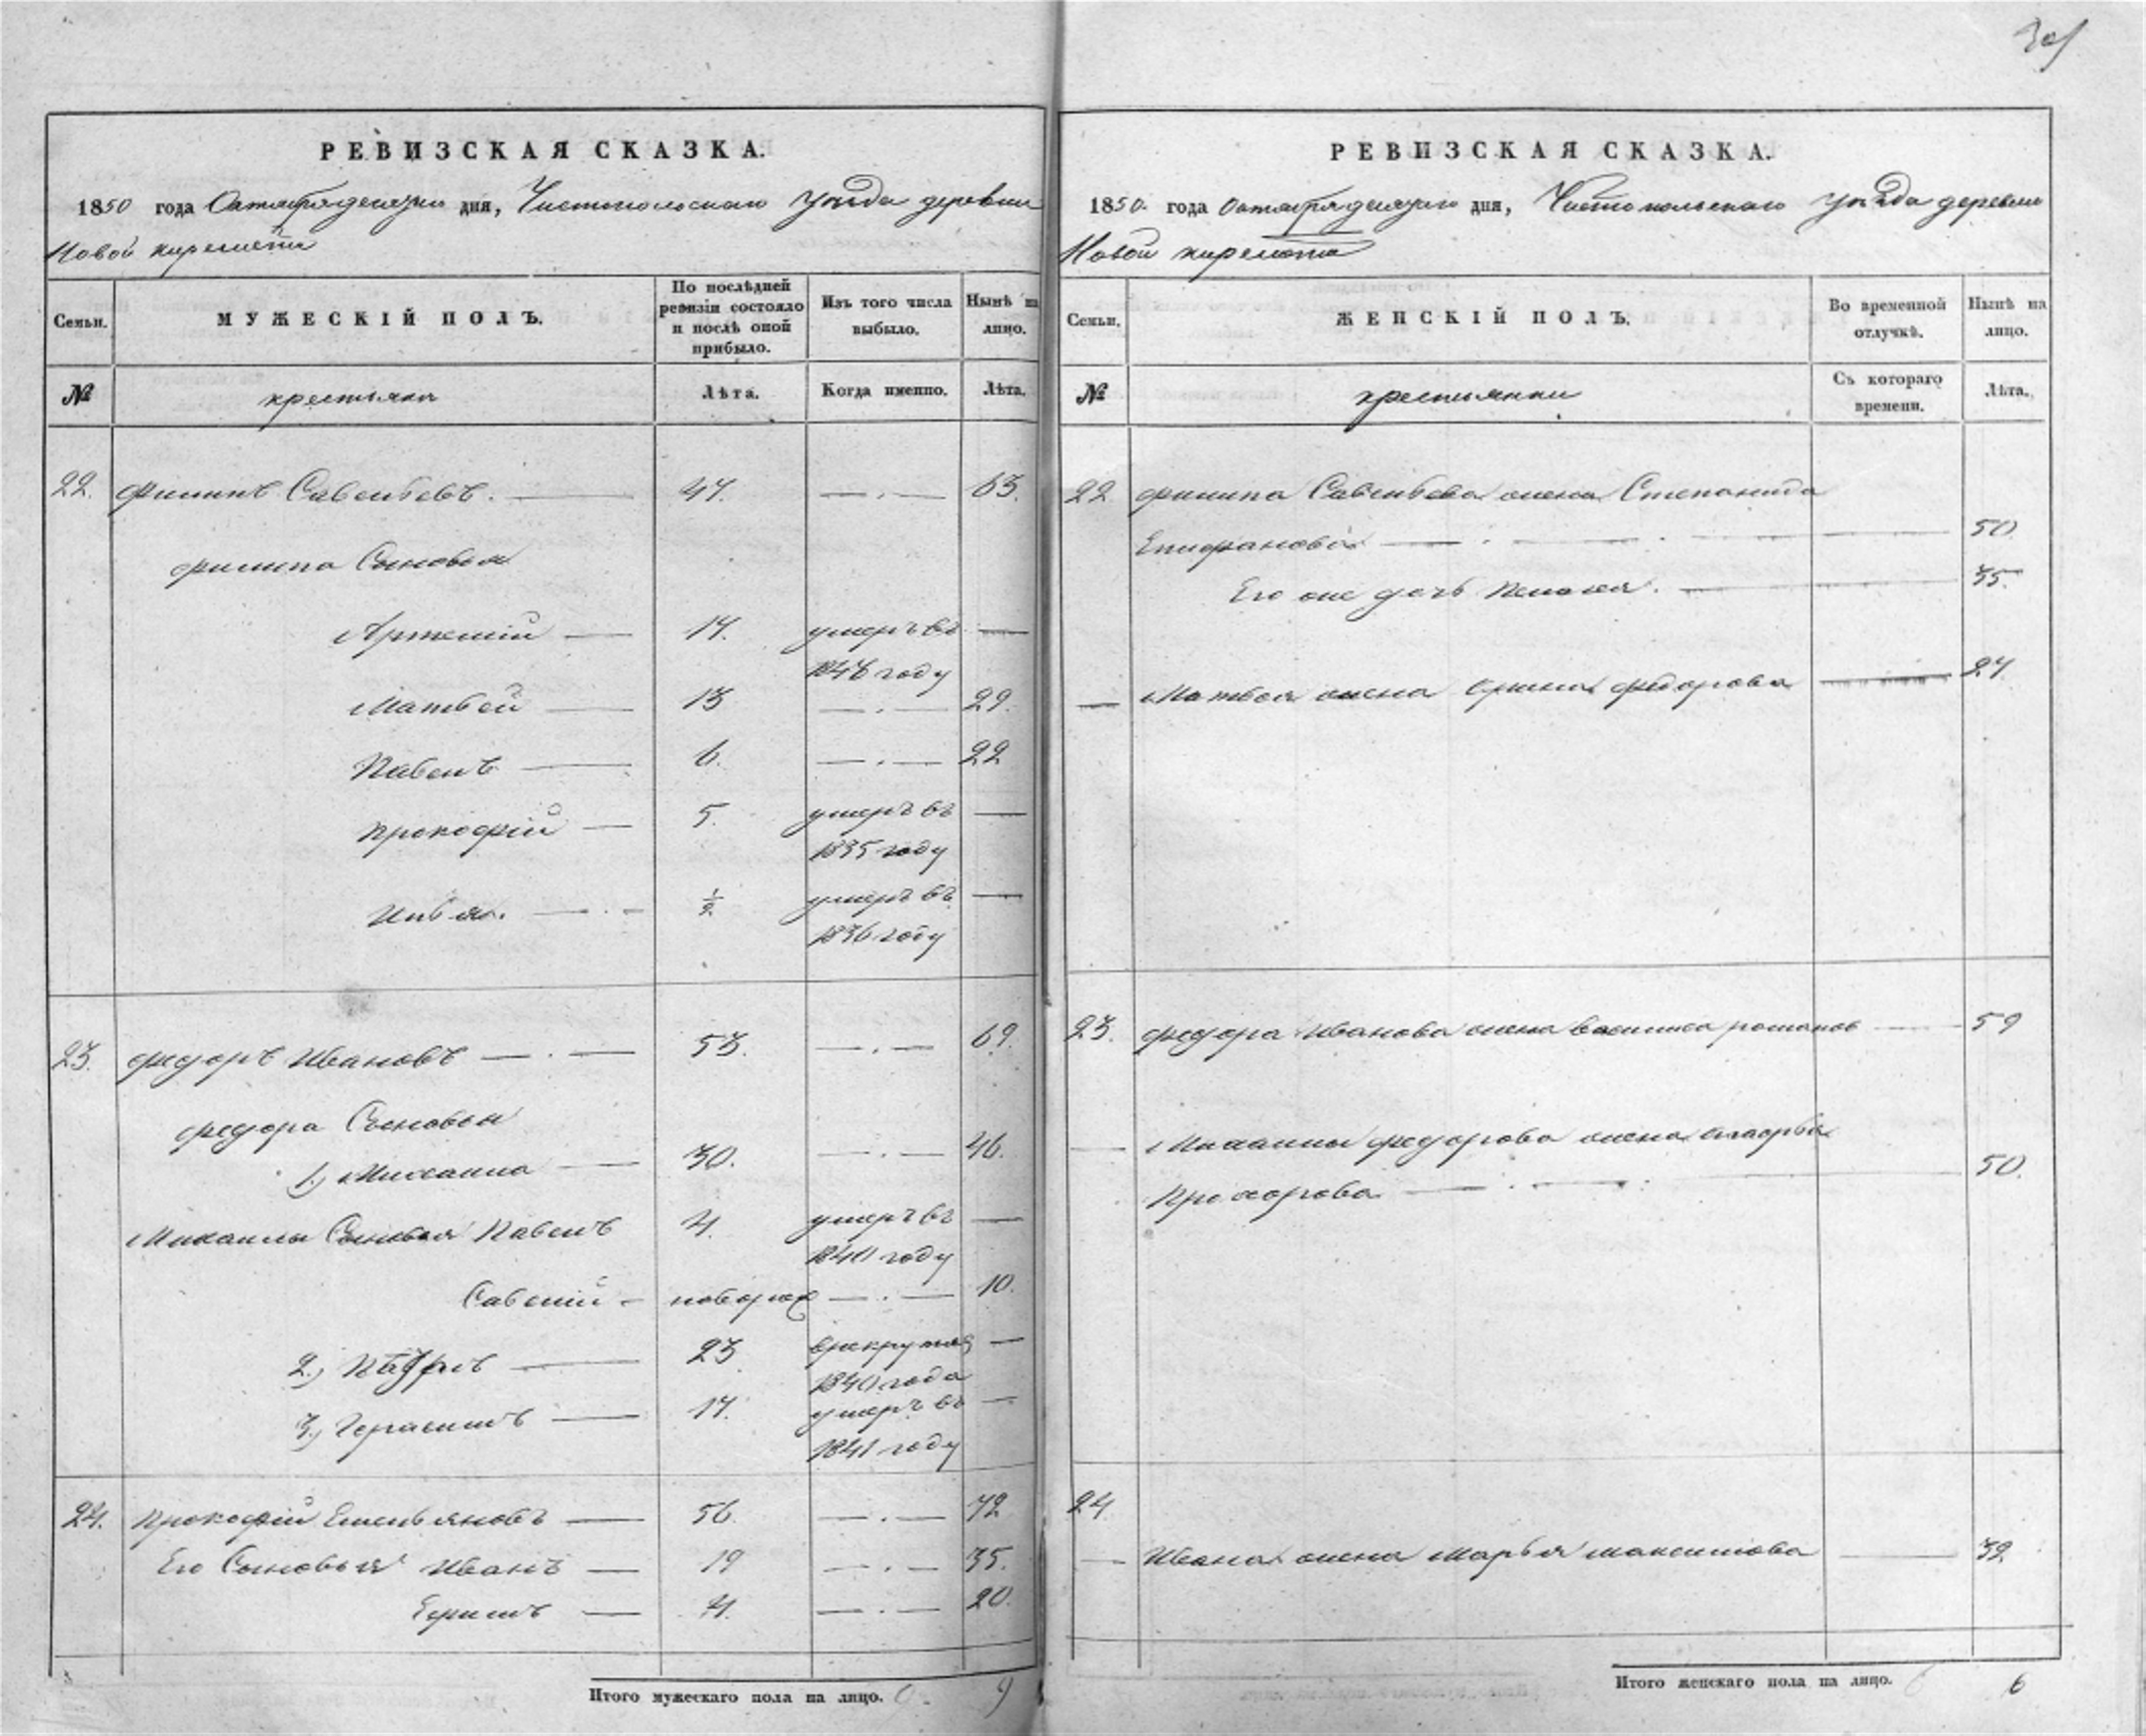 301
РЕВИЗСКАЯ СКАЗКА.
1850 года Октября дня, Чистопольскаго Уѣзда деревни
Новой киремети
Семьи.
МУЖЕСКІЙ ПОЛЪ.
По послѣдней ревизіи состояло и послѣ оной прибыло.
Изъ того числа выбыло.
Нынѣ на лицо.
№
крестьяни
Лѣта.
Когда именно.
Лѣта.
22. Филипъ Савельевъ. 47. 63.
Филипа Сыновья
Артемій 17. умеръ въ
1848 году
Матвей 13 29.
Павелъ 6. 22
Прокофій 5. умеръ въ
1835 году
Илья. ½ умеръ въ
1836 году
23. Федоръ Ивановъ 53. 69.
Федора Сыновья
1.) Михаила 30. 46.
Михаилы Сыновья Павелъ 4. умеръ въ
1840 году
Савелій новорож 10.
2.) 23 врекруты
1840 года
3.) Герасимъ 17. умеръ въ
1841 году
24. Прокофій Емельяновъ 56. 72
Его Сыновья Иванъ 19 35.
Ефимъ 4. 20.
Итого мужескаго пола на лицо. 9. 9
РЕВИЗСКАЯ СКАЗКА.
1850. года Октября дня, Чистопольскаго Уѣзда деревни
Новой киремети
Семьи.
ЖЕНСКІЙ ПОЛЪ.
Во временной отлучкѣ.
Нынѣ на лицо.
№
крестьянки
Съ котораго времени.
Лѣта.
22 Филипа Савельева жена Степанида
Епифанова 50
Его же дочь 35.
Матвея жена Орина Федорова 27
23. Федора Иванова жена Василиса романов 59
Михаилы Федорова жена
Прохорова 50.
24
Ивана жена Марья максимова 39.
Итого женскаго пола на лицо. 6 6